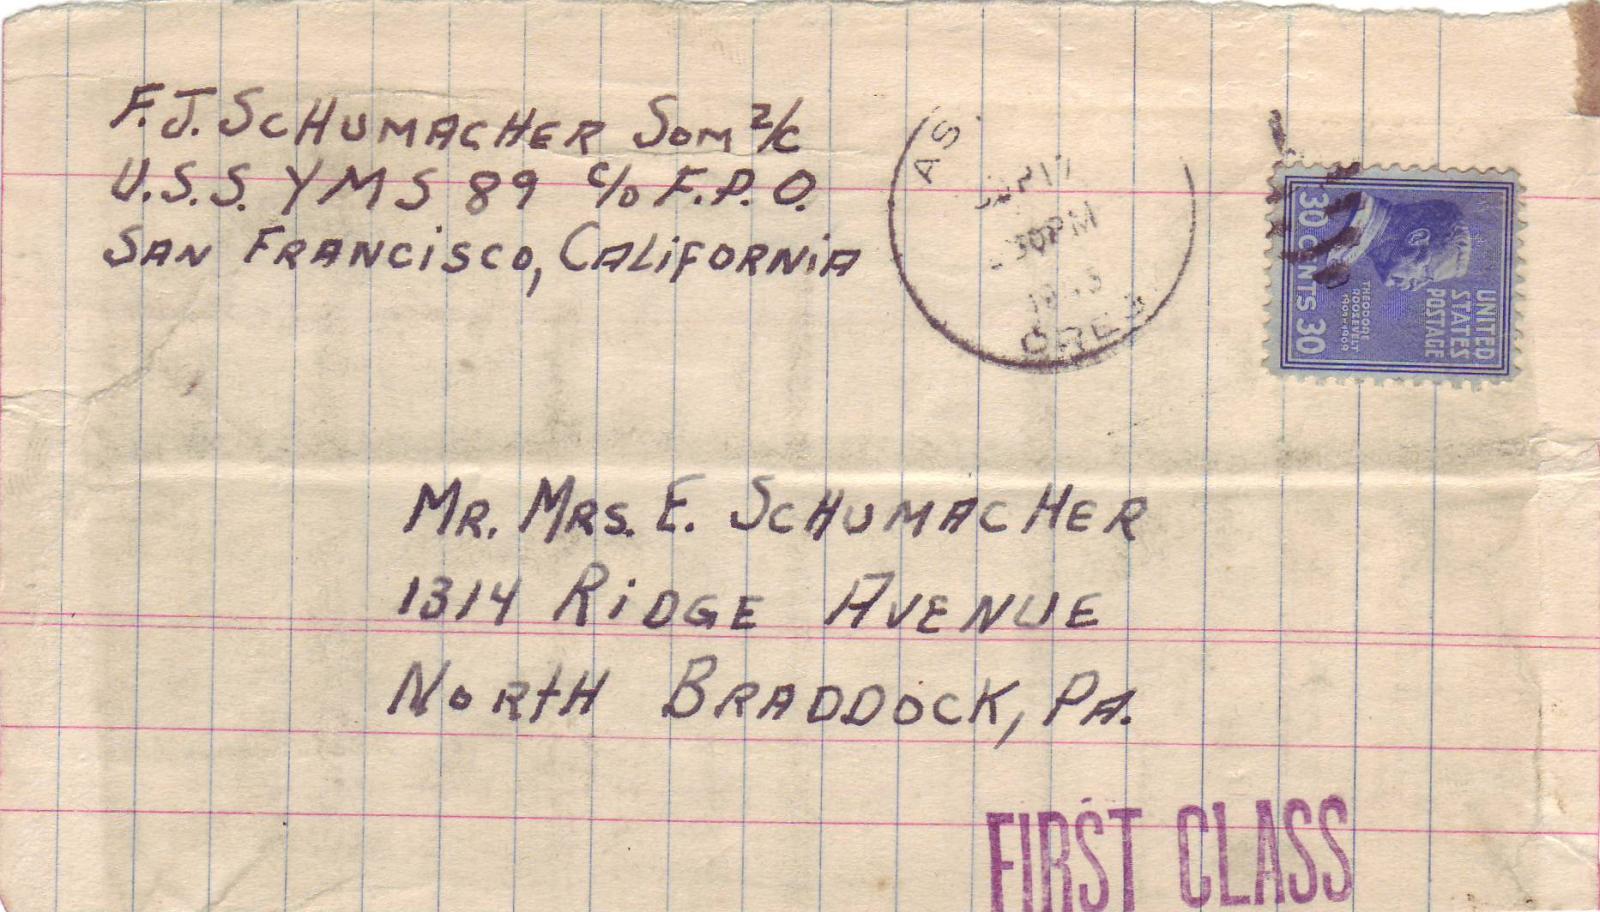 F.J. SCHUMACHER SOM 2/C
U.S.S. YMS 89 C/O F.P.O.
SAN FRANCISCO, CALiFORNiA
AS
17
30PM
ORE
30 CENTS 30
THEODORE
ROOSEVELT
1901-1909
UNITED
STATES
POSTAGE
MR. MRS. E. SCHUMACHER
1314 RiDGE AVENUE
NORtH BRADDOCK, PA.
FIRST CLASS